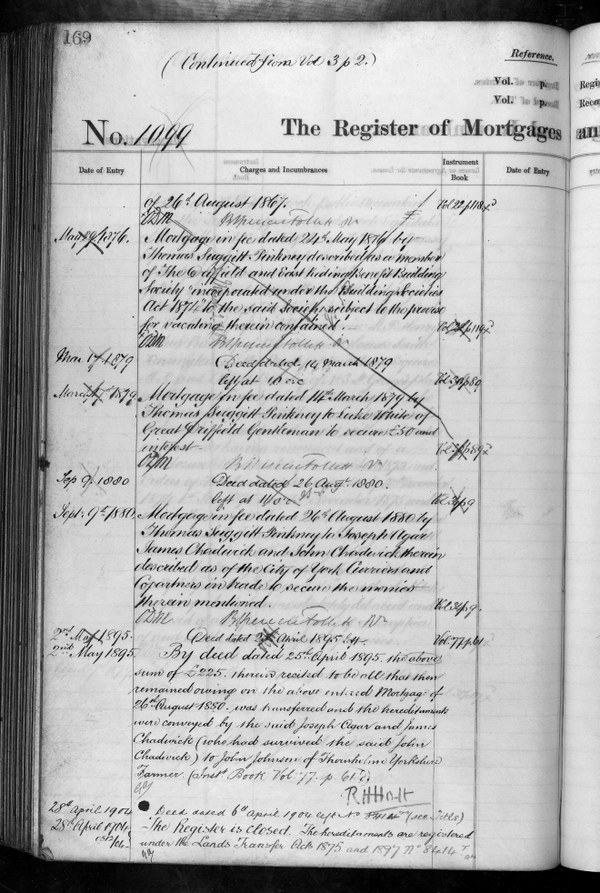 169
(Continued from Vol 3 p 2.)
Reference.
Vol. p.
Vol. p.
No. 1099
The Register of Mortgages an
Date of Entry
Charges and Incumbrances
Instrument Book
Date of Entry
of 26th August 1867.
May 29 1876.
Mortgage in fee dated 24th May 1876 by
Thomas Suggitt Pinkney described as a member
of The Driffield and East Riding Benefit Building
Society incorporated under the Building Societies
Act 1874 to the said Society subject to the proviso
for vacating therein contained.
Mar. 17 1879
Deed dated 14 March 1879
left at
March 17 1879
Mortgage in fee dated 14th March 1879 by
Thomas Suggitt Pinkney to Luke White of
Great Driffield Gentleman to secure £50 and
interest
Sep 9 1880
Deed dated 26 Augt 1880.
left at
Sept. 9th 1880.
Mortgage in fee dated 26th August 1880 by
Thomas Suggitt Pinkney to Joseph Agar
James Chadwick and John Chadwick therein
described as of the City of York Curriers and
Copartners in trade to secure the monies
therein mentioned.
2nd May 1895.
Deed dated April 1895
Vol. 77 p. 61
2nd May 1895.
By deed dated 25th April 1895, the above
sum of £225. therein recited to be all that then
remained owing on the above entered Mortgage of
26th August 1880. was transferred and the hereditaments
were conveyed by the said Joseph Agar and James
Chadwick (who had survived the said John
Chadwick) to John Johnson of Thornholme Yorkshire
Farmer. (Inst. Book Vol. 77. p 61.)
28th April 1904
Deed dated 6th April 1904 (see Title)
28th April 1904
The Register is closed. The hereditaments are registered
under the Lands Transfer Acts 1875 and 1897 No